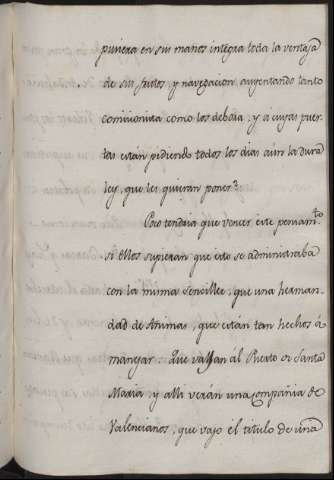 pusiera en sus manos integra toda la ventaja
de sus frutos, y navegacion, aventando tanto
comisionista como los debora, y à cuyas puer
tas están pidiendo todos los dias aún la dura
ley, que les quieran poner?
Poco tendria que vencer este pensam.to
si ellos supieran que esto se administraba
con la misma sencilléz, que una herman-
dad de Animas, que están tan hechos à
manejar. Que vayan al Puerto de Santa
Maria, y alli verán una Compañia de
Valencianos, que vajo el titulo de una